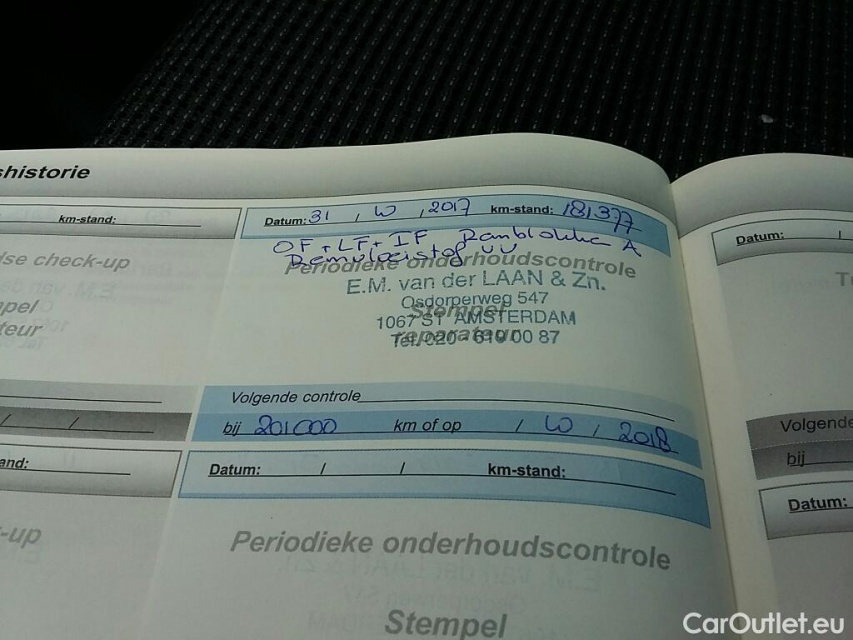 shistorie
km-stand:
lse check-up
Datum: 31 / 10 / 2017 km-stand: 181.377
OF + LF + IF Remblokke A
Remvloeistof VV
Periodieke onderhoudscontrole
E.M. van der LAAN & Zn.
Osdorperweg 547
Stempel
1067 ST AMSTERDAM
reparateur
Tel. 020 - 619 00 87
pel
teur
Volgende controle
bij 201.000 km of op / 10 / 2018
and:
Datum: / / km-stand:
-up
Periodieke onderhoudscontrole
Stempel
Datum: /
Volgende
bij
Datum:
CarOutlet.eu